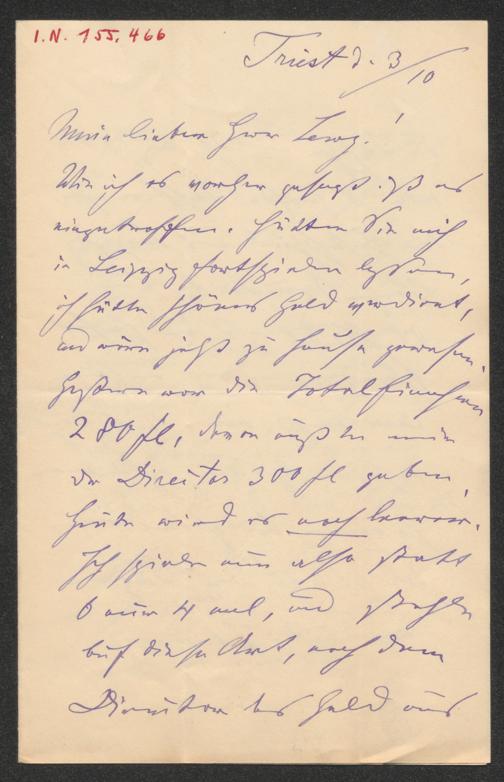 I.N. 155.466
Triest d. 3/10
Mein lieber Herr Tewg!
Wie ich es vorher gesagt ist es
eingetroffen. Hätten Sie mich
in Leipzig fortspielen lassen,
ich hätte schönes Geld verdient,
und wäre jetzt zu Hause gewesen.
Gestern war die Totaleinnahme
280 fl, davon mußte mir
der Director 300 fl geben,
heute wird es noch leerer.
Ich spiele nun also statt
6 nur 4 mal, und stehle
auf diese Art, noch dem
Director das Geld aus